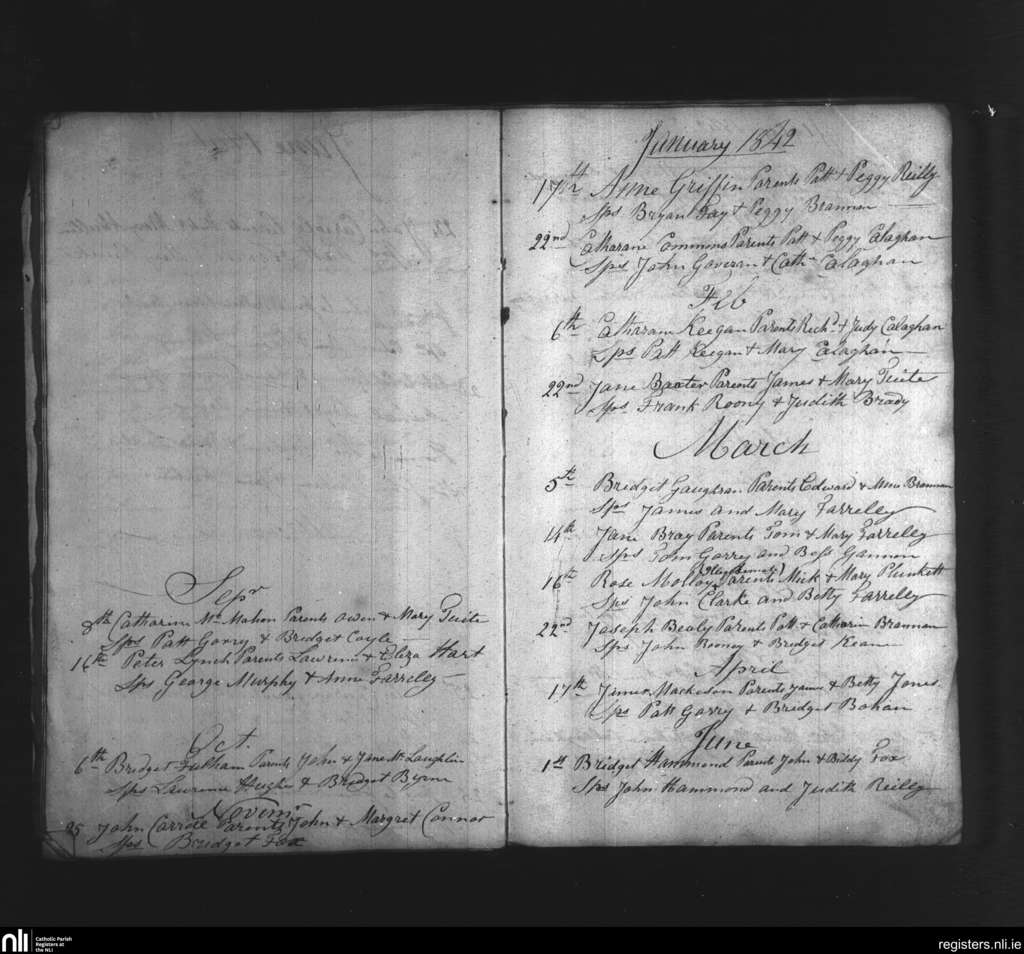 Sepr
8th Catharine Mc Mahon Parents Owen & Mary Tuite
Sps Patt Gorry & Bridget Coyle
16th Peter Lynch Parents Lawrence & Eliza Hart
Sps George Murphy & Anne Farreley
Oct.
6th Bridget Fulham Parents John & Jane Mc Laughlin
Sps Lawrence Hughes & Bridget Byrne
Novemr
25 John Carrole Parents John & Margret Connor
Sps Bridget Fox
January 1842
17th Anne Griffin Parents Patt & Peggy Reilly
Sps Bryan Fay & Peggy Brannan
22nd Catharane Commons Parents Patt & Peggy Calaghan
Sps John Govern & Cath Calaghan
Feb
6th Catharan Keegan Parents Richd & Judy Calaghan
Sps Patt Keegan & Mary Calaghan
22nd Jane Baxter Parents James & Mary Tuite
Sps Frank Roony & Judith Brady
March
5th Bridget Gaughran Parents Edward & Brannan
Sps James and Mary Farreley
14th Jane Bray Parents Tom & Mary Farreley
Sps Tom Gorry and Bess Gannon
16th Rose Molloy Parents Mick & Mary Plunkett
Sps John Clarke and Betty Farreley
22nd Joseph Bealy Parents Patt & Catharin Brannan
Sps John Rooney & Bridget Kean
April
17th Parents James & Betty Jones
Sps Patt Gorry & Bridget Bohan
June
1st Bridget Hammond Parents John & Biddy Fox
Sps John Hammond and Judith Reilly
nli
Catholic Parish
Registers at
the NLI
registers.nli.ie